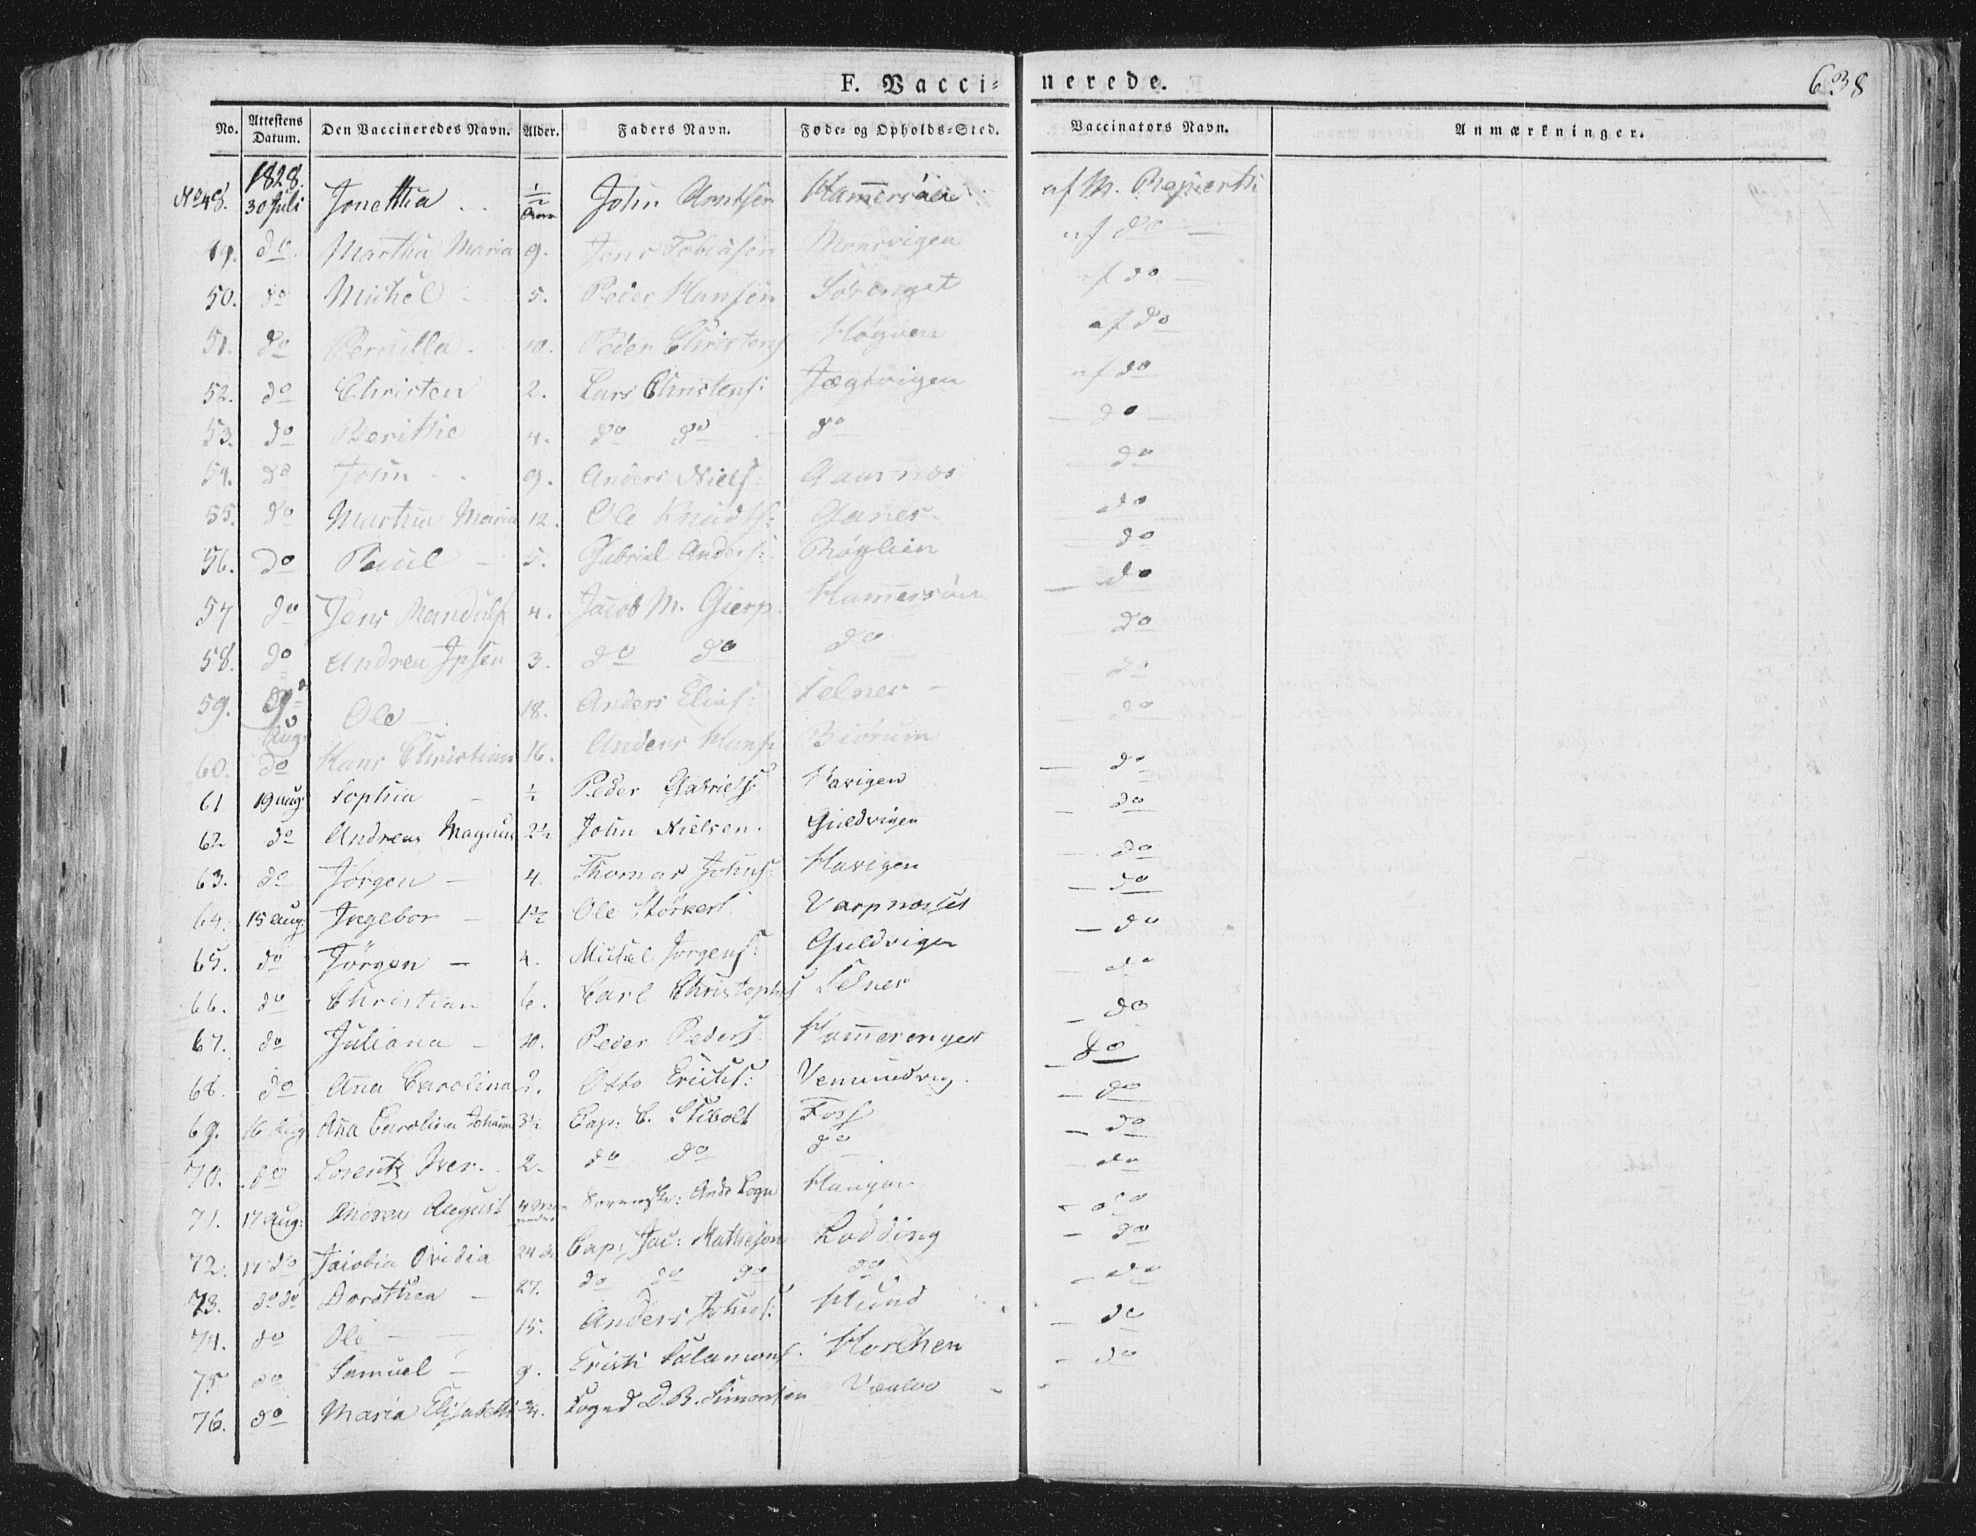 F. Vacci= nerede. 638
No. Attestens Datum. Den Vaccineredes Navn. Alder. Faders Navn. Føde- og Opholds-Sted. Vaccinators Navn. Anmærkninger.
1828.
No 48. 30 Juli Jonettha ½ John Arntsen Hamersöen af M.
49. do Martha Maria 9. Jens Tobiasen af do
50. do Michel 5. Peder Hansen Solvenget af do
51. do Pernilla 10. Peder Christens af do
52. do Christen 2. Lars Christens: Jægtvigen af do
53. do Berithe 4. do do do — do
54. do John 9. Anders Niels: Aaarnæs — do
55. do Martha Maria 12. Ole Knudts: Glasnes — do
56. do Paul 5. Gabriel Anders: Röglien — do
57 do Jens Mandulf 4. Jacob M. Gierp. Hamersöen — do
58. do Andrea Ipsen 3. do do do — do
59. Aug: Ole 18. Anders Elias: Selnes — do
60. do Hans Christian 16. Anders Hans: Biörum — do
61 19 aug: Sophia ½ Peder Gabriels: Havigen — do
62. do Andreas Magnus 2½ John Nielsen. Guldvigen — do
63. do Jörgen 4. Thomas Johns: Havigen — do
64. 15 aug: Ingebor 1½ Ole Störkers Varpnæsset — do
65. do Jörgen 4. Michel Jörgens: Guldvigen — do
66. do Christian 6. Carl Christophs Selnes — do
67. do Juliana 10. Peder Peders: Hammerenget — do
68. do Ana Carolina 2. Otto Erichs: Vemundvig. — do
69. 16 Aug Ana Carolina Johanna 3½ Cap: C. Stibolt Foss — do
70. do Lorentz Iver. 2. do do do — do
71. 17 Aug: Andreas August 4 And: Logn Haugen — do
72. 17 do Jacobia Ovidia 24 do Cap: Jac: Mathesen Lodding — do
73. do do Dorothea 27. do do do do — do
74. do Ole 15. Anders Johns: Hund — do
75 do Samuel 9. Cristi Salamons. — do
76. do Maria Elisabeth ¾. Foged D. B. Simonsen